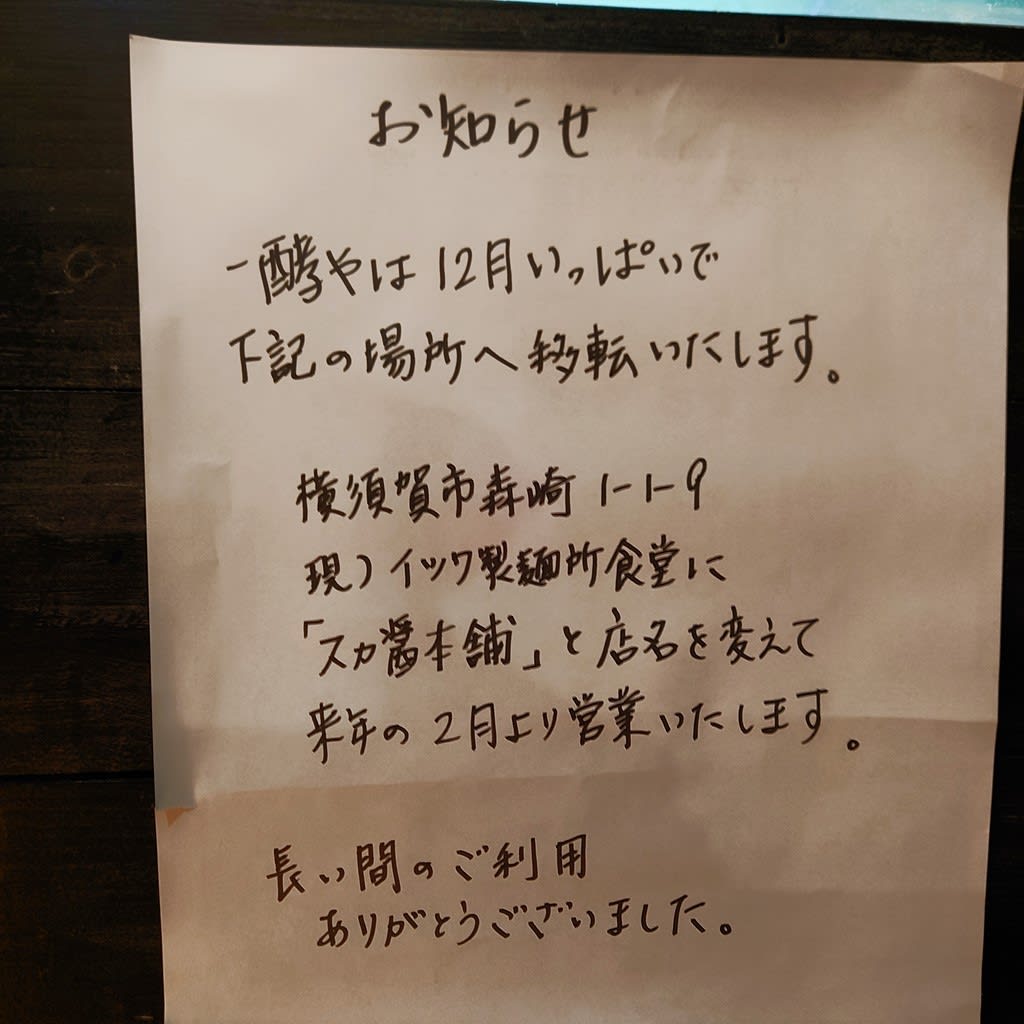 お知らせ
一酵やは12月いっぱいで
下記の場所へ移転いたします。
横須賀市森崎1-1-9
現)イツワ製麺所食堂に
「スカ醤本舗」と店名を変えて
来年の2月より営業いたします。
長い間のご利用
ありがとうございました。